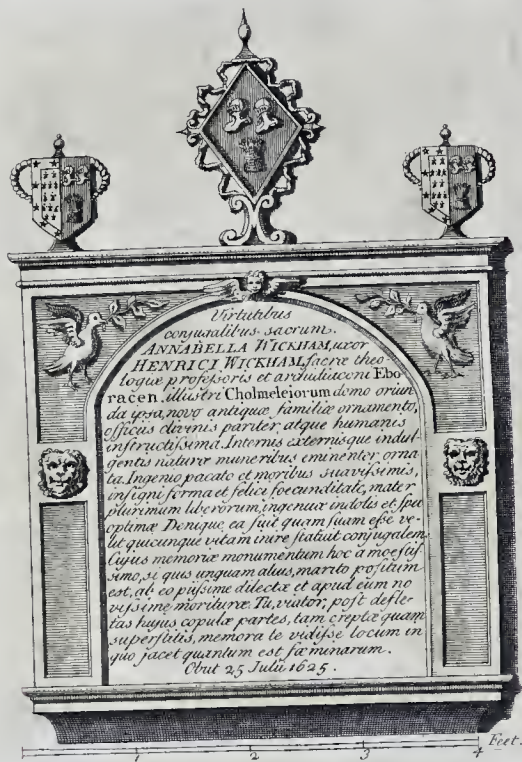 Virtutibus
conjugalibus sacrum.
ANNABELLA WICKHAM, uxor
HENRICI WICKHAM, sacræ theo-
logiæ professoris et archidiaconi Ebo-
racen. illustri Cholmeleiorum domo oriun
da ipsa, novo antiquæ familiæ ornamento,
officiis divinis pariter, atque humanis
instructissima. Internis externisque indul-
gentis naturæ muneribus eminenter orna
ta. Ingenio pacato et moribus suavissimis,
insigni forma et felici foecunditate, mater
plurimum liberorum, ingenuæ indolis et spei
optimæ Denique, ea fuit quam suam esse ve-
lit quicunque vitam inire statuit conjugalem
Cujus memoriæ monumentum hoc a moestis-
simo, si quis unquam alius, marito positum
est, ab eo piissime dilectæ et apud eum no
vissime morituræ. Tu, viator, post defle-
tas hujus copulæ partes, tam ereptæ quam
superstitis, memora te vidisse locum in
quo jacet quantum est fæminarum.
Obiit 25 Julii 1625.
1 2 3 4 Feet.